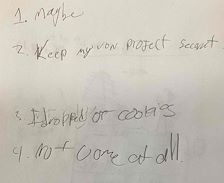 1. Maybe
2. Keep my own project secret.
3. I dropped or cookies
4. Not come at all.